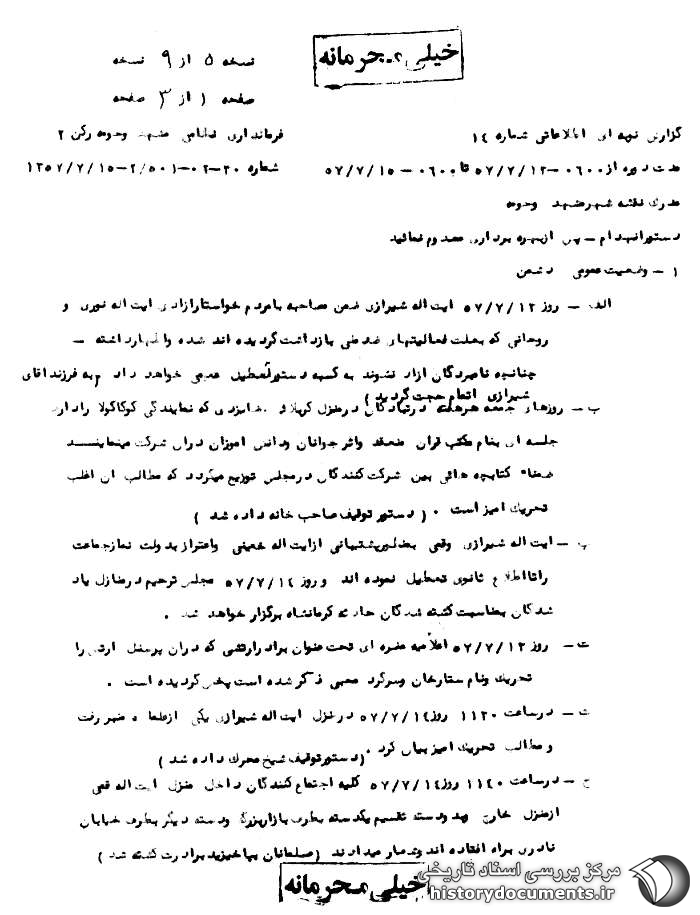 خیلی محرمانه
نسخه ۵ از ۹ نسخه
صفحه ۱ از ۳ صفحه
گزارش نوبه ای اطلاعاتی شماره ۱۴
فرمانداری نظامی مشهد وحومه رکن ۲
مدت دوره از ۰۶۰۰ – ۵۷/۷/۱۳ تا ۰۶۰۰ – ۵۷/۷/۱۵
شماره ۳۰–۰۲–۵۰۱/۲–۱۳۵۷/۷/۱۵
مدرک نقشه شهر مشهد وحومه
دستورانهدام – پس ازبهره برداری معدوم نمائید
۱ – وضعیت عمومی دشمن
الف – روز ۵۷/۷/۱۳ ایت اله شیرازی ضمن مصاحبه بامردم خواستارازادی ایت اله نوری و
روحانی که بعلت فعالیتهای ضدملی بازداشت گردیده اند شده واظهارداشته –
چنانچه نامبردگان ازاد نشوند به کسبه دستورتعطیل عمومی خواهد داد به فرزنداقای
شیرازی اتمام حجت گردید )
ب – روزهای جمعه هرهفته درمنزل که نمایندگی کوکاکولا رادارد
جلسه ای بنام مکتب قران منعقد واثر جوانان ودانش اموزان دران شرکت مینمایند
ضمنا" کتابچه هائی بین شرکت کنندگان درمجلس توزیع میگردد که مطالب ان اغلب
تحریک امیز است . ( دستور توقیف صاحب خانه داده شد )
پ – ایت اله شیرازی وقمی بمنظورپشتیبانی ازایت اله خمینی واعتراز بدولت نمازجماعت
راتااطلاع ثانوی تعطیل نموده اند و روز ۵۷/۷/۱۴ مجلس ترحیم درمنازل یاد
شدگان بمناسبت کشته شدگان حادثه کرمانشاه برگزار خواهد شد .
ت – روز ۵۷/۷/۱۳ اعلامیه ای تحت عنوان برادرارتشی که دران پرسنل ارتش را
تحریک ونام ستارخان وسرگرد محبی ذکر شده است پخش گردیده است .
ث – درساعت ۱۱۳۰ روز ۵۷/۷/۱۴ درمنزل ایت اله شیرازی یکی ازعلما به منبر رفت
و مطالب تحریک امیز بیان کرد . (دستورتوقیف شیخ محرک داده شد )
ج – درساعت ۱۱۴۰ روز ۵۷/۷/۱۴ کلیه اجتماع کنندگان داخل منزل ایت اله قمی
ازمنزل خارج وبدودسته تقسیم یکدسته بطرف بازاربزرگ ودسته دیگر بطرف خیابان
نادری براه افتاده اند وشعار میدادند (مسلمانان بپاخیزید برادرت کشته شد )
خیلی محرمانه
مرکز بررسی اسناد تاریخی
historydocuments.ir